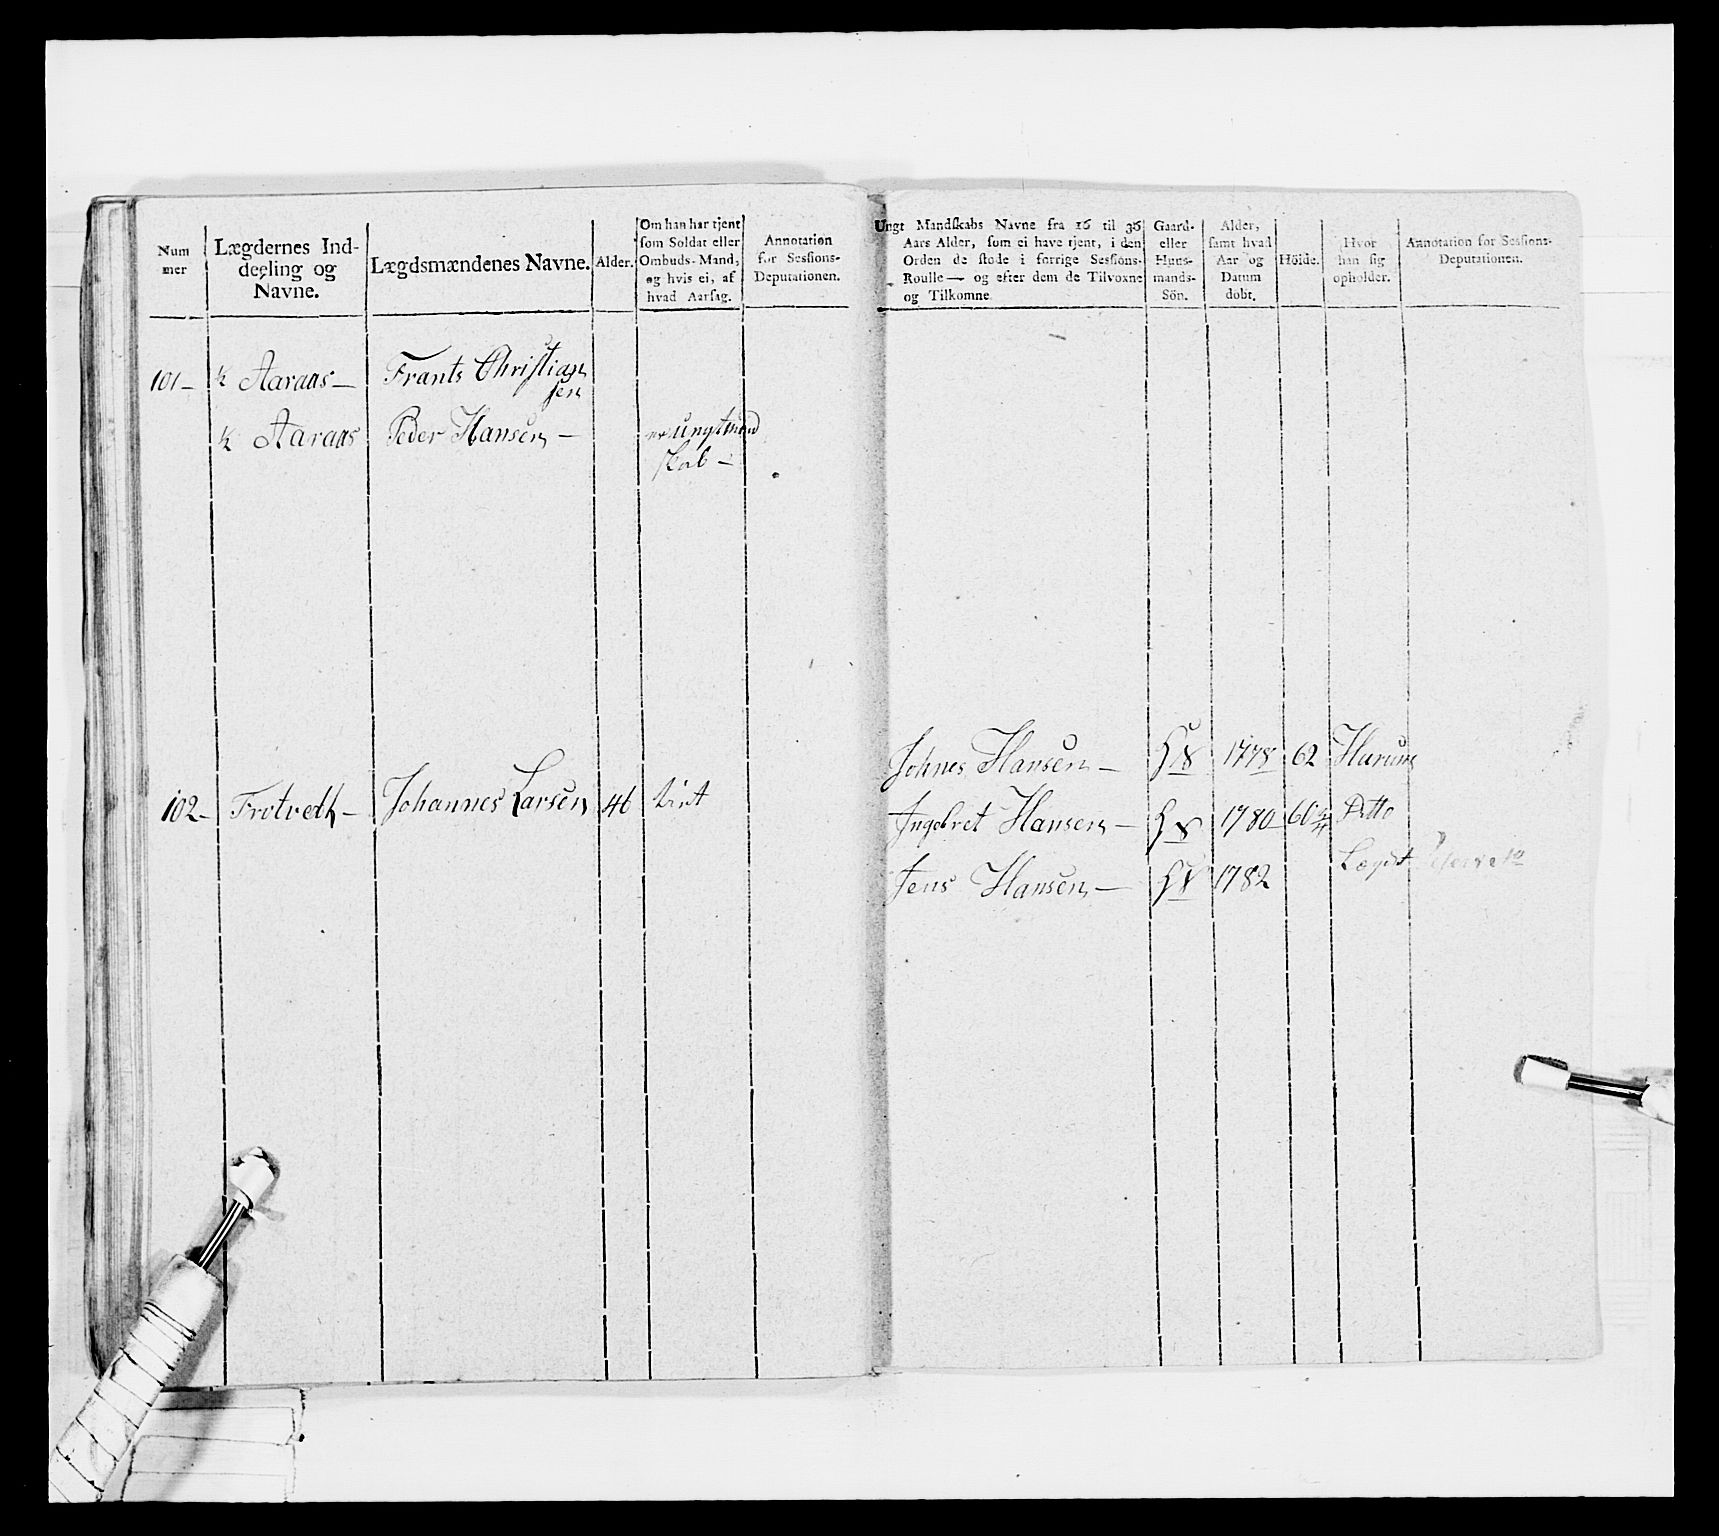 Num
mer
Lægdernes Ind-
deeling og
Navne.
Lægdsmændenes Navne.
Alder.
Om han har tjent
som Soldat eller
Ombuds-Mand,
og hvis ei, af
hvad Aarsag.
Annotation
for Sessions-
Deputationen.
101 - ½ Aaraas - Frants Christian
sen
½ Aaraas Peder Hansen - er ungt mand
skab -
102 - Trotveth - Johannes Larsen 46
Ungt Mandskabs Navne fra 16 til 36
Aars Alder, som ei have tjent, i den
Orden de stode i forrige Sessions-
Roulle — og efter dem de Tilvoxne
og Tilkomne
Gaard-
eller
Huus-
mands-
Sön.
Alder,
samt hvad
Aar og
Datum
döbt.
Höide.
Hvor
han sig
opholder.
Annotation for Sessions-
Deputationen.
Johnes Hansen - 1778 62 Hurum
Ingebret Hansen - 1780 60 Ditto
Jens Hansen - 1782